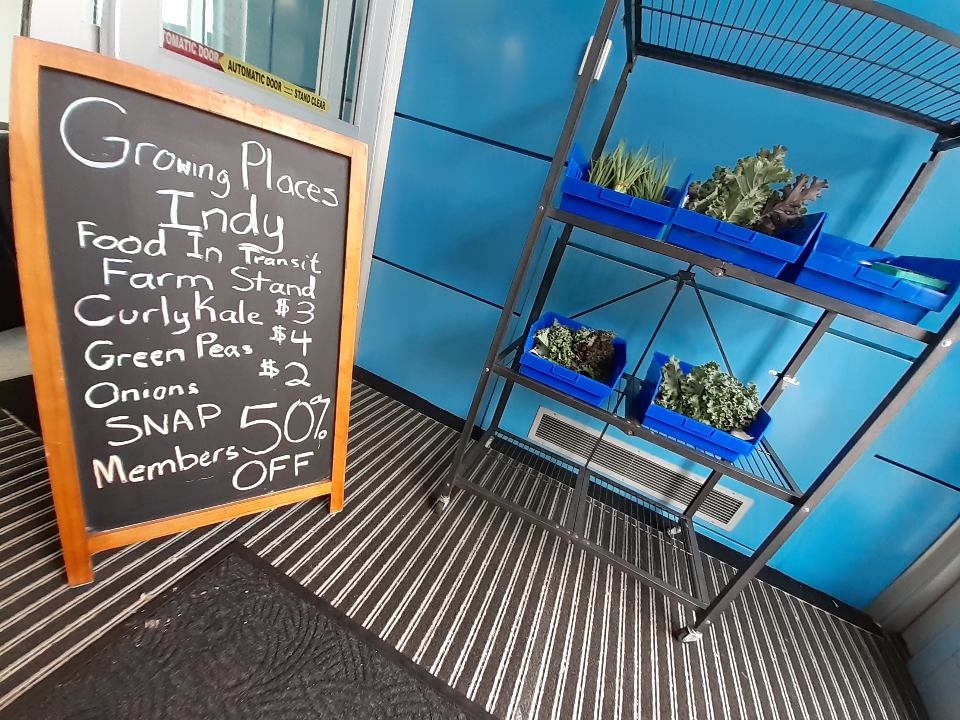 TOMATIC DOOR
AUTOMATIC DOOR STAND CLEAR
Growing Places
Indy
Food In Transit
Farm Stand
Curly Kale $3
Green Peas $4
Onions $2
SNAP 50%
Members OFF